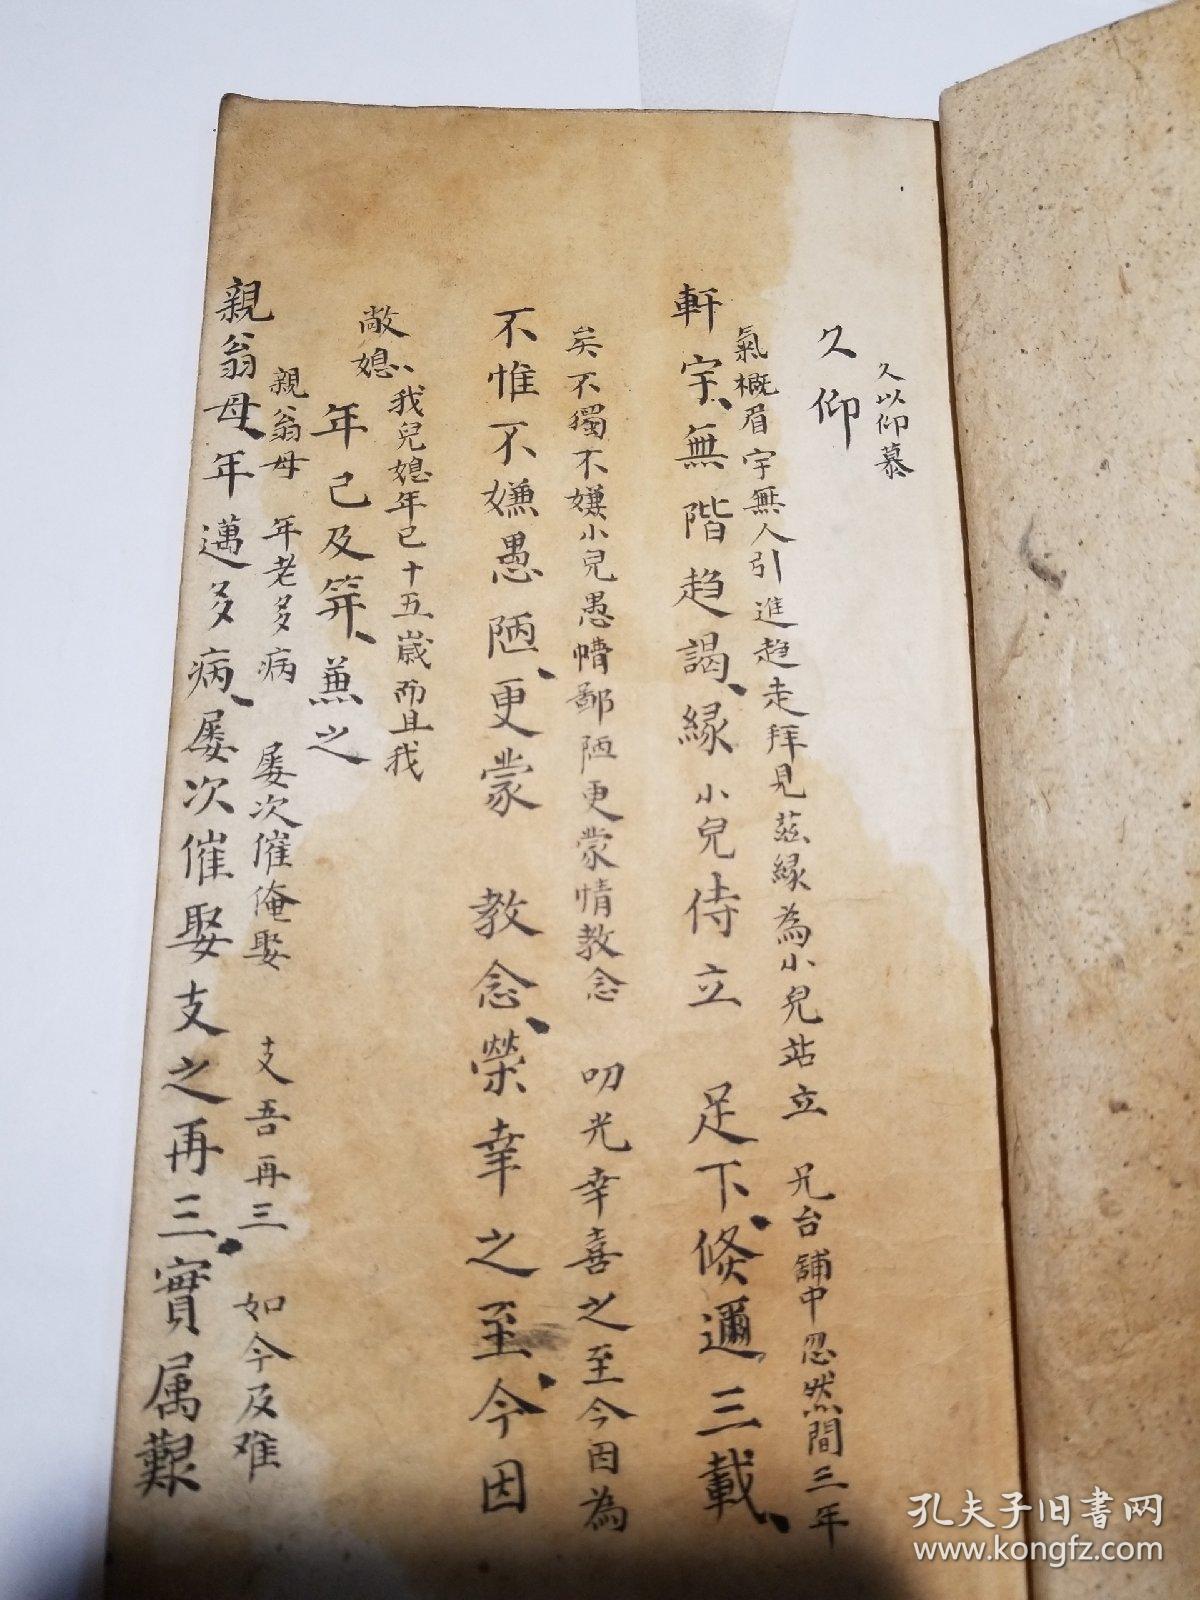 久以仰慕
久仰
氣概眉宇無人引進趋走拜見兹緣為小兒站立 兄台舖中忽然間三年
軒宇、無階趋謁、緣小兒侍立 足下、倐邇三載、
矣不獨不嫌小兒愚懵鄙陋更蒙情教念 叨光幸喜之至今因為
不惟不嫌愚陋、更蒙 教念、榮幸之至、今因
我兒媳年已十五歲而且我
敝媳、年已及笄、兼之
親翁母 年老多病 屡次催俺娶 支吾再三 如今及难
親翁母、年邁多病、屡次催娶支之再三、實属艱
孔夫子旧書网
www.kongfz.com